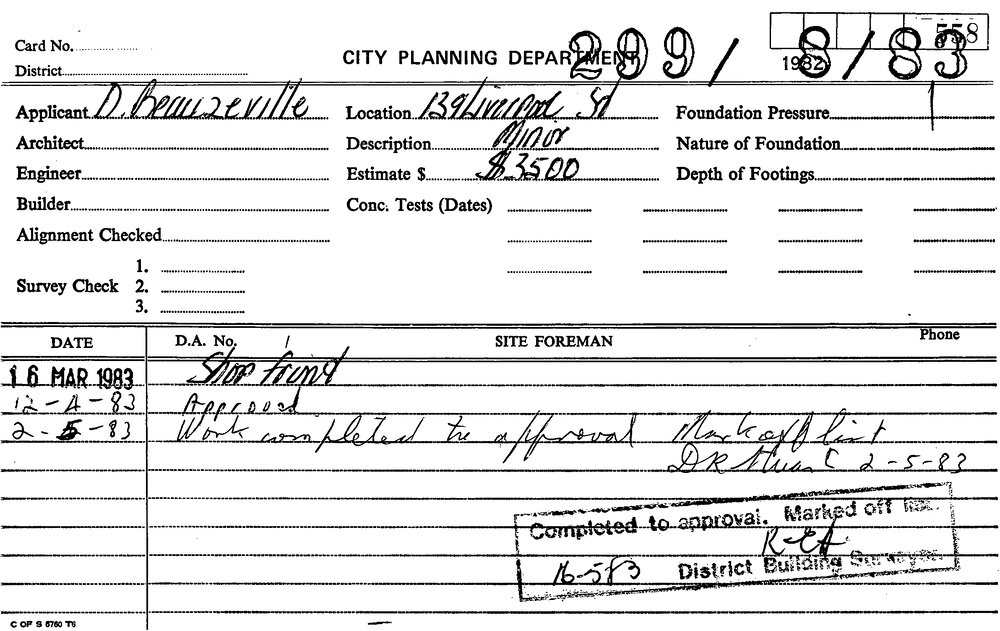 558
Card No.
CITY PLANNING DEPARTMENT
299/8/83
1982
District
Applicant D. Beauzeville Location 139 Liverpool St Foundation Pressure
Architect Description Minor Nature of Foundation
Engineer Estimate $ $3500 Depth of Footings
Builder Conc. Tests (Dates)
Alignment Checked
Survey Check 1.
2.
3.
DATE D.A. No. / SITE FOREMAN Phone
16 MAR 1983 Shop Front
12-4-83 Approved
2-5-83 Work completed to approval Mark off list
DR 2-5-83
Completed to approval. Marked off list.
16-5-83 District Building Surveyor.
C OF S 5760 T6